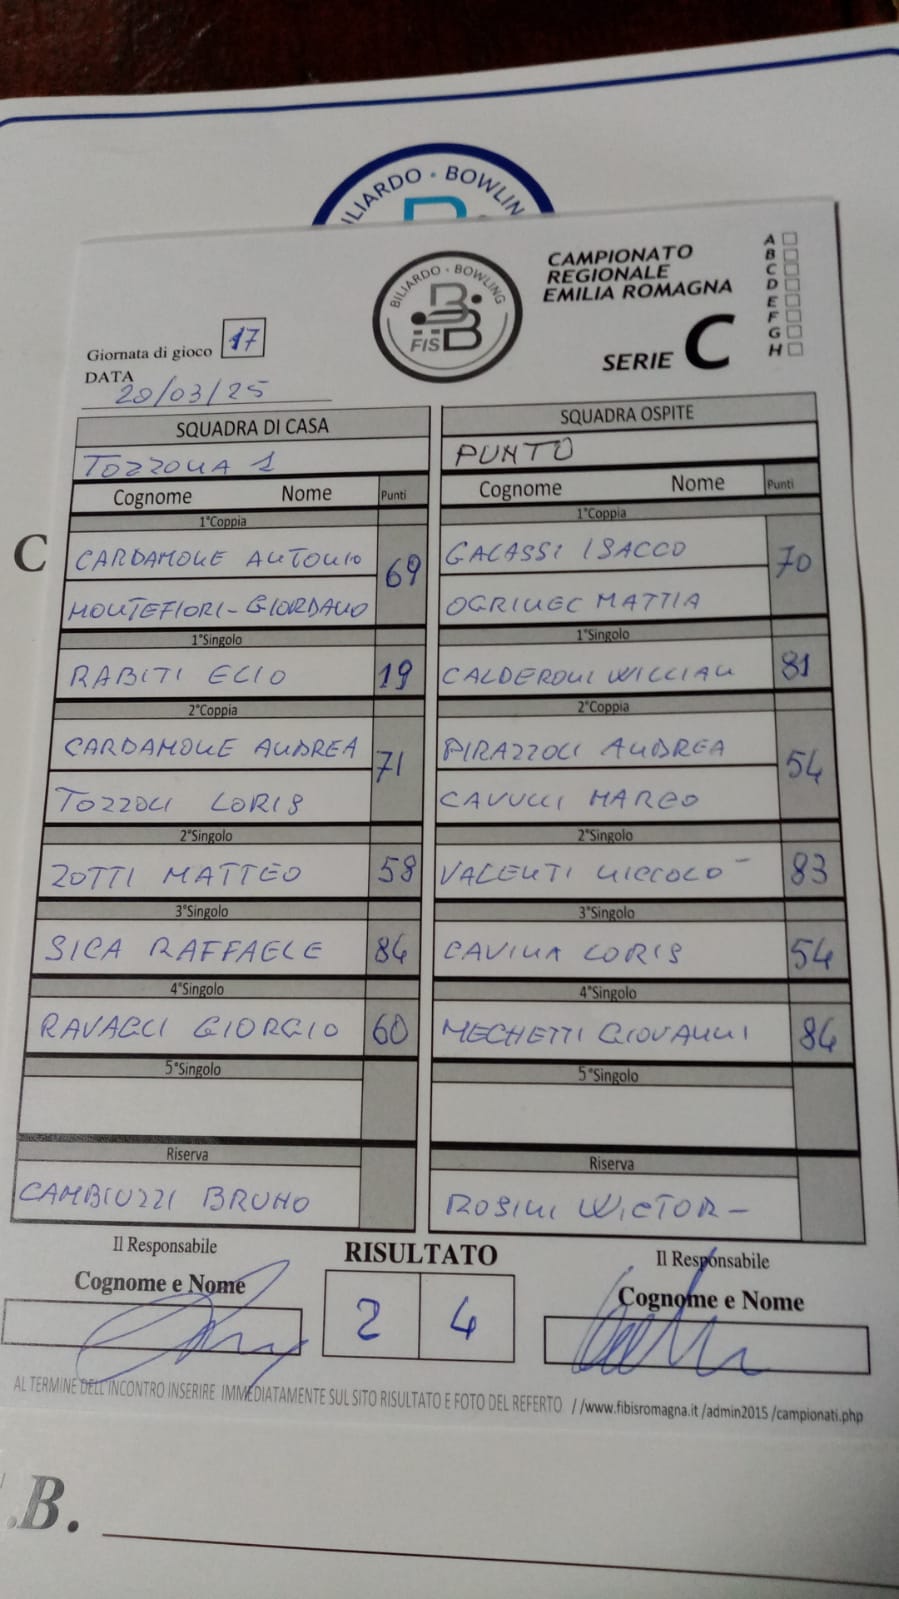 BILIARDO · BOWLIN
B
BILIARDO · BOWLING
FIS
CAMPIONATO
REGIONALE
EMILIA ROMAGNA
SERIE C
A
B
C
D
E
F
G
H
Giornata di gioco 17
DATA
28/03/25
SQUADRA DI CASA
SQUADRA OSPITE
TOZZONA 1
PUNTO
Cognome Nome Punti
Cognome Nome Punti
1°Coppia
1°Coppia
CARDAMONE ANTONIO 69
GALASSI ISACCO 70
MONTEFIORI-GIORDANO
OGRINEC MATTIA
1°Singolo
1°Singolo
RABITI ELIO 19
CALDERONI WILLIAM 81
2°Coppia
2°Coppia
CARDAMONE ANDREA 71
PIRAZZOLI ANDREA 54
TOZZOLI LORIS
CAVULLI MARCO
2°Singolo
2°Singolo
ZOTTI MATTEO 58
VALENTI NICCOLO' 83
3°Singolo
3°Singolo
SICA RAFFAELE 84
CAVINA LORIS 54
4°Singolo
4°Singolo
RAVAGLI GIORGIO 60
MECHETTI GIOVANNI 84
5°Singolo
5°Singolo
Riserva
Riserva
CAMBIUZZI BRUNO
ROSINI WICTOR -
Il Responsabile
RISULTATO
Il Responsabile
Cognome e Nome
2 4
Cognome e Nome
AL TERMINE DELL'INCONTRO INSERIRE IMMEDIATAMENTE SUL SITO RISULTATO E FOTO DEL REFERTO //www.fibisromagna.it /admin2015 /campionati.php
C
.B.